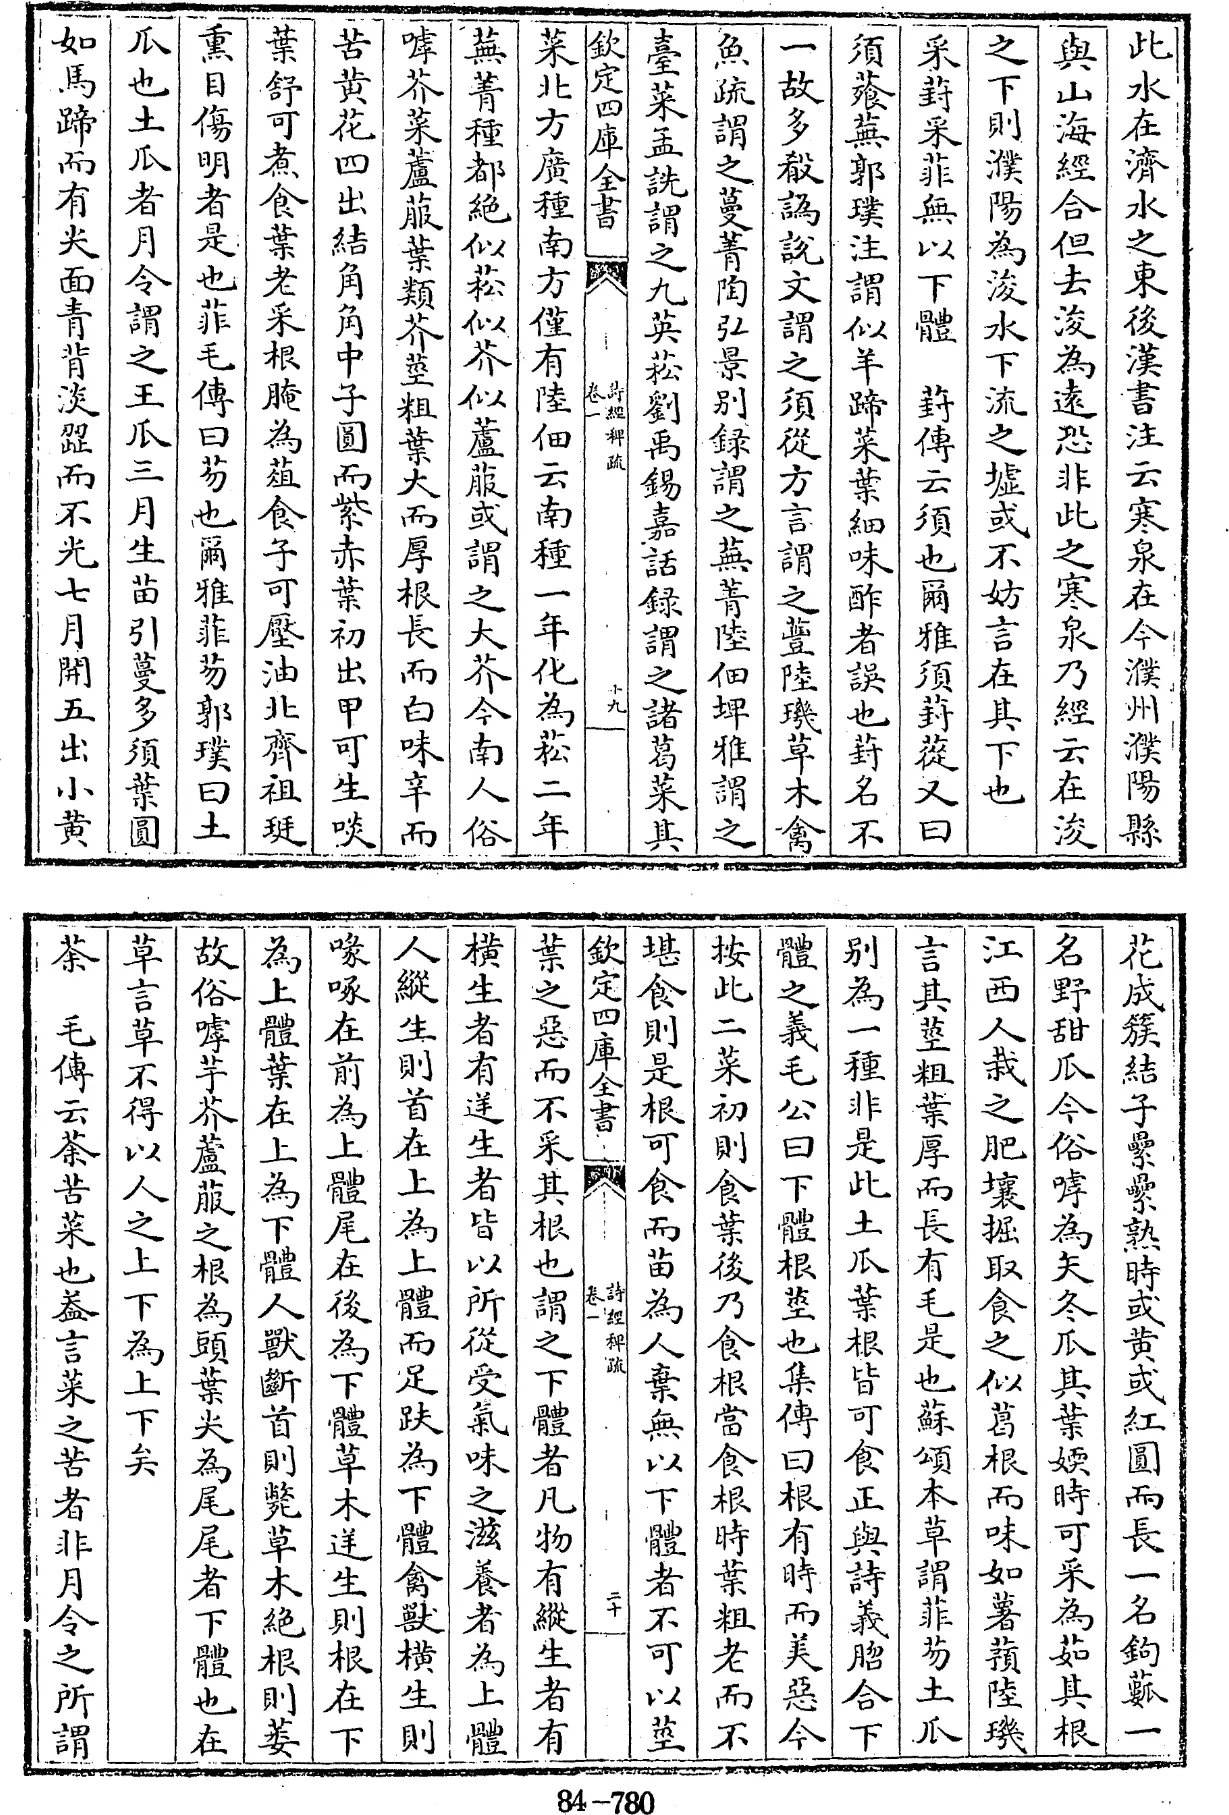 此水在濟水之東後漢書注云寒泉在今濮州濮陽縣
與山海經合但去浚為遠恐非此之寒泉乃經云在浚
之下則濮陽為浚水下流之墟或不妨言在其下也
采葑采菲無以下體　葑傳云須也爾雅須葑蓯又曰
須蕵蕪郭璞注謂似羊蹄菜葉細味酢者誤也葑名不
一故多殽譌說文謂之須從方言謂之蘴陸璣草木禽
魚疏謂之蔓菁陶弘景别録謂之蕪菁陸佃埤雅謂之
臺菜孟詵謂之九英菘劉禹錫嘉話録謂之諸葛菜其
欽定四庫全書
詩經稗疏
卷一
十九
菜北方廣種南方僅有陸佃云南種一年化為菘二年
蕪菁種都絶似菘似芥似蘆菔或謂之大芥今南人俗
嘑芥菜蘆菔葉類芥莖粗葉大而厚根長而白味辛而
苦黄花四出結角角中子圓而紫赤葉初出甲可生啖
葉舒可煮食葉老采根腌為葅食子可壓油北齊祖珽
熏目傷明者是也菲毛傳曰芴也爾雅菲芴郭璞曰土
瓜也土瓜者月令謂之王瓜三月生苗引蔓多須葉圓
如馬蹄而有尖面青背淡澀而不光七月開五出小黄
花成簇結子纍纍熟時或黄或紅圓而長一名鉤藈一
名野甜瓜今俗嘑為天冬瓜其葉㛐時可采為茹其根
江西人栽之肥壤掘取食之似葛根而味如薯蕷陸璣
言其莖粗葉厚而長有毛是也蘇頌本草謂菲芴土瓜
别為一種非是此土瓜葉根皆可食正與詩義脗合下
體之義毛公曰下體根莖也集傳曰根有時而美惡今
按此二菜初則食葉後乃食根當食根時葉粗老而不
堪食則是根可食而苗為人棄無以下體者不可以莖
欽定四庫全書
詩經稗疏
卷一
二十
葉之惡而不采其根也謂之下體者凡物有縱生者有
橫生者有逆生者皆以所從受氣味之滋養者為上體
人縱生則首在上為上體而足趺為下體禽獸橫生則
喙啄在前為上體尾在後為下體草木逆生則根在下
為上體葉在上為下體人獸斷首則斃草木絶根則萎
故俗嘑芋芥蘆菔之根為頭葉尖為尾尾者下體也在
草言草不得以人之上下為上下矣
荼　毛傳云荼苦菜也葢言菜之苦者非月令之所謂
84-780